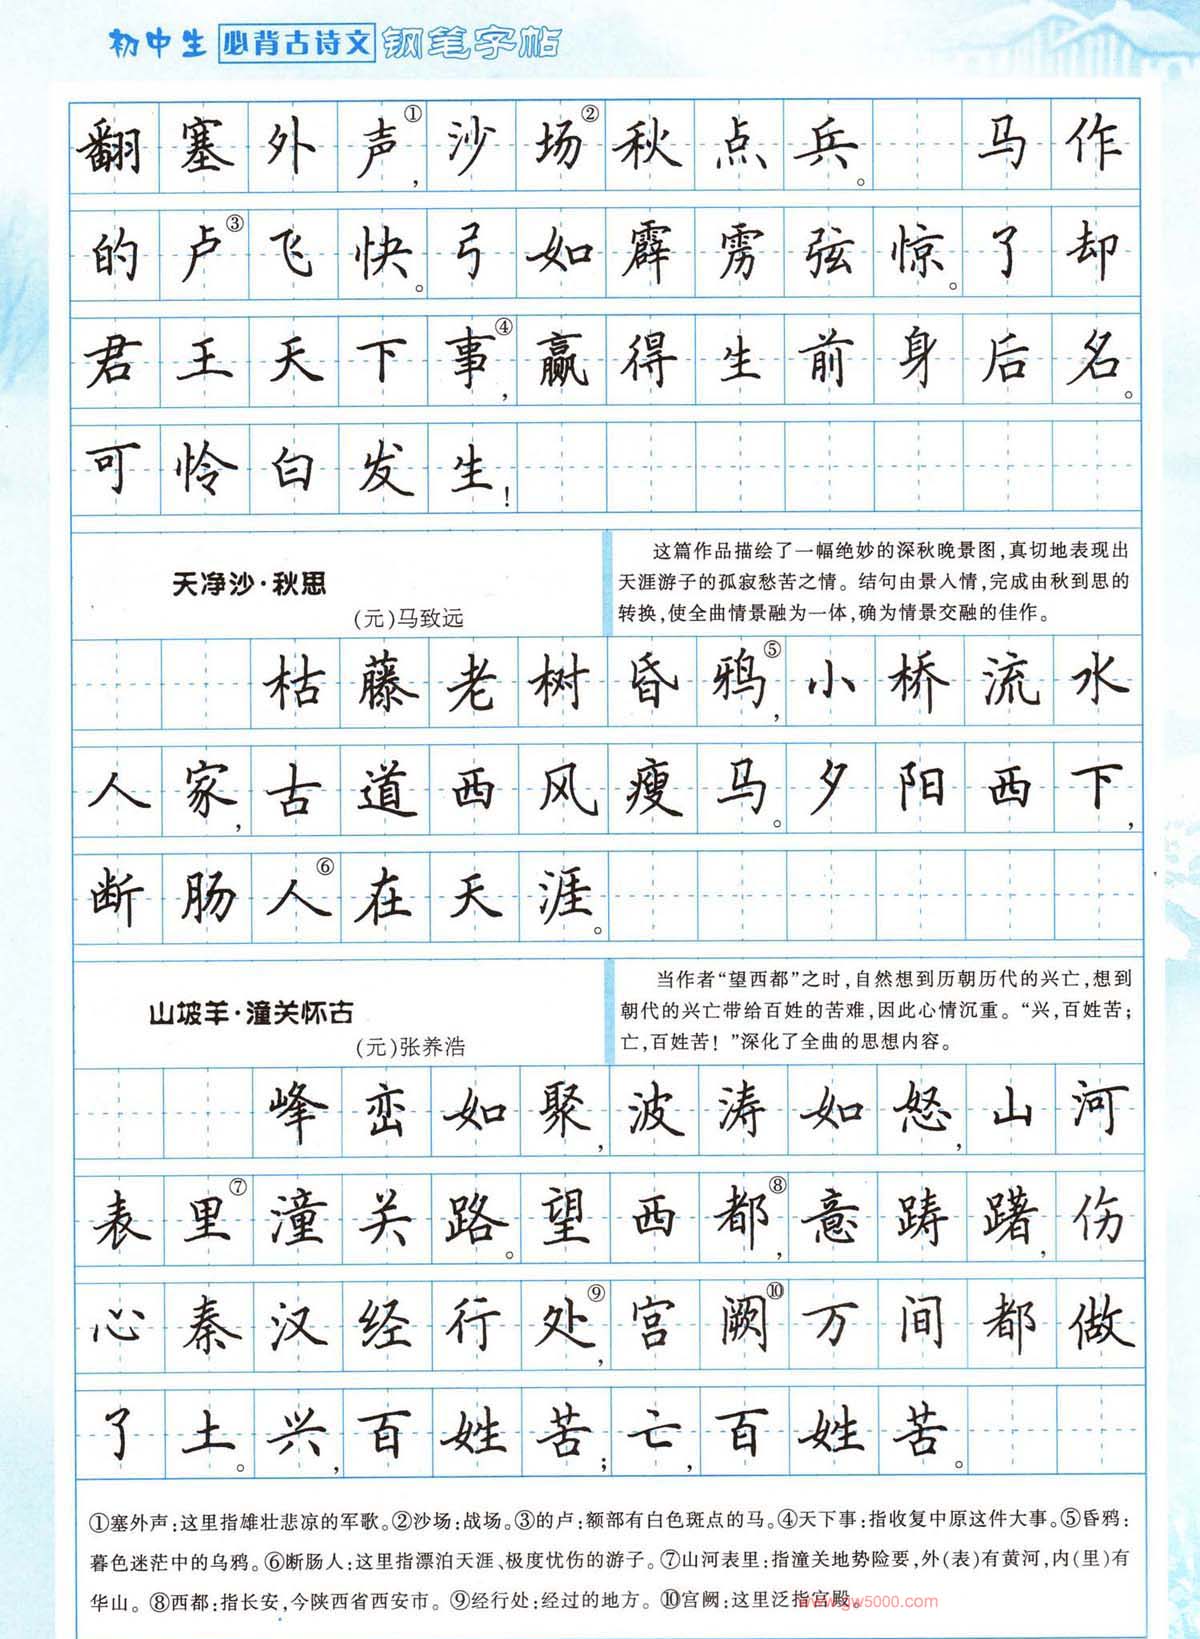 初中生 必背古诗文 钢笔字帖
翻塞外声①,沙场②秋点兵。 马作
的卢③飞快。弓如霹雳弦惊。了却
君王天下事④,赢得生前身后名。
可怜白发生!
天净沙·秋思
(元)马致远
这篇作品描绘了一幅绝妙的深秋晚景图,真切地表现出
天涯游子的孤寂愁苦之情。结句由景人情,完成由秋到思的
转换,使全曲情景融为一体,确为情景交融的佳作。
枯藤老树昏鸦⑤,小桥流水
人家,古道西风瘦马。夕阳西下,
断肠人⑥在天涯。
山坡羊·潼关怀古
(元)张养浩
当作者“望西都”之时,自然想到历朝历代的兴亡,想到
朝代的兴亡带给百姓的苦难,因此心情沉重。“兴,百姓苦;
亡,百姓苦!”深化了全曲的思想内容。
峰峦如聚,波涛如怒,山河
表里⑦潼关路。望西都⑧,意踌躇,伤
心秦汉经行处⑨,宫阙⑩万间都做
了土。兴,百姓苦;亡,百姓苦。
①塞外声:这里指雄壮悲凉的军歌。②沙场:战场。③的卢:额部有白色斑点的马。④天下事:指收复中原这件大事。⑤昏鸦:
暮色迷茫中的乌鸦。⑥断肠人:这里指漂泊天涯、极度忧伤的游子。⑦山河表里:指潼关地势险要,外(表)有黄河,内(里)有
华山。⑧西都:指长安,今陕西省西安市。⑨经行处:经过的地方。⑩宫阙:这里泛指宫殿。
www.gw5000.com